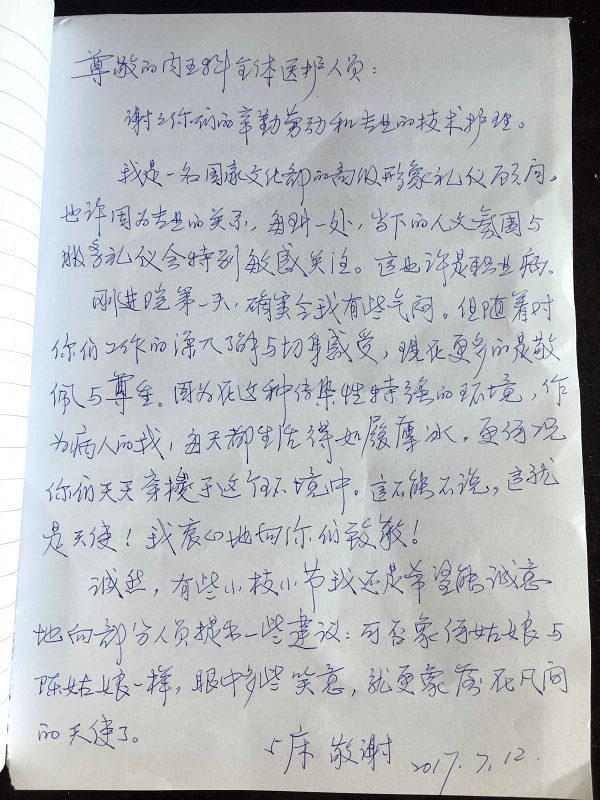 尊敬的内五科全体医护人员：
谢谢你们的辛勤劳动和专业的技术护理。
我是一名国家文化部的高级形象礼仪顾问。
也许因为专业的关系，每到一处，当下的人文氛围与
服务礼仪会特别敏感关注。这也许是职业病。
刚进院第一天，确实令我有些气闷。但随着对
你们工作的深入了解与切身感受，现在更多的是敬
佩与尊重。因为在这种传染性特强的环境，作
为病人的我，每天都生活得如履薄冰。更何况
你们天天穿梭于这个环境中。这不能不说，这就
是天使！我衷心地向你们致敬！
诚然，有些小枝小节我还是希望能诚意
地向部分人员提出一些建议：可否象何姑娘与
陈姑娘一样，眼中多些笑意，就更象落在凡间
的天使了。
5床 敬谢 2017.7.12.